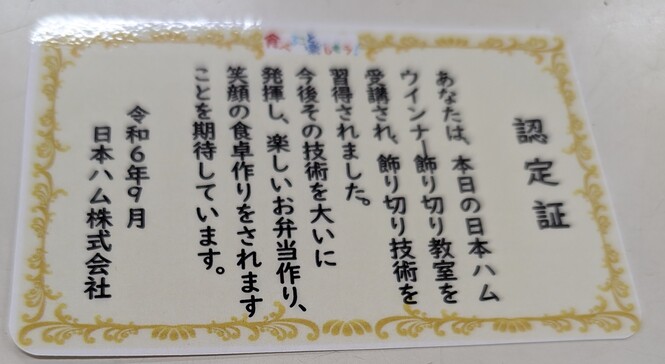 食べることを楽しもう!
認定証
あなたは、本日の日本ハム
ウインナー飾り切り教室を
受講され、飾り切り技術を
習得されました。
今後その技術を大いに
発揮し、楽しいお弁当作り、
笑顔の食卓作りをされます
ことを期待しています。
令和6年9月
日本ハム株式会社